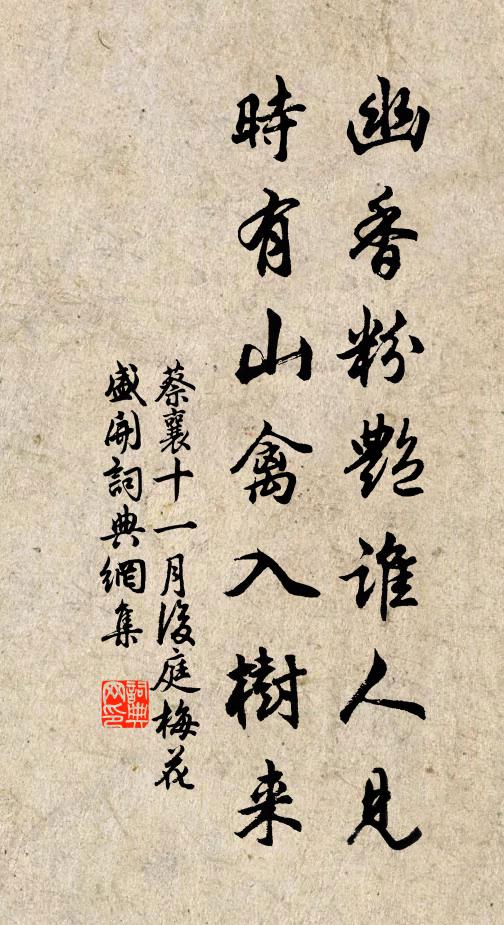 幽香粉艷誰人見
時有山禽入樹来
蔡襄十一月後庭梅花
盛開詞典網集
詞典
网印